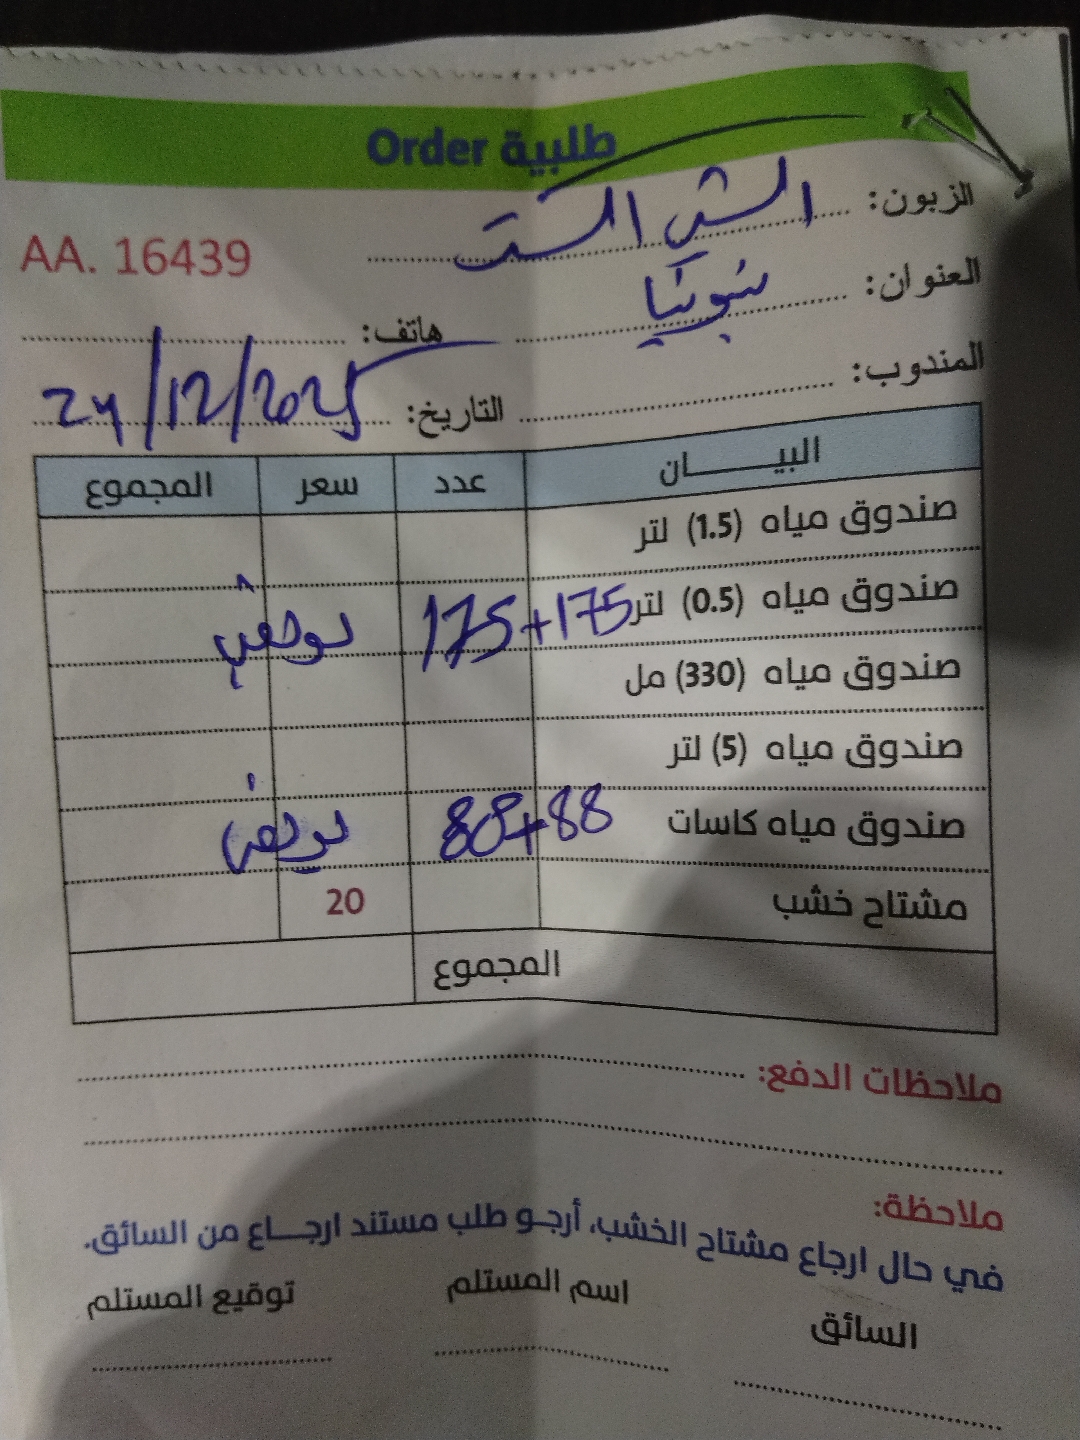 طلبية Order
الزبون:
AA. 16439
العنوان:
هاتف:
المندوب:
التاريخ: 24/12/2025
البيـــــــان عدد سعر المجموع
صندوق مياه (1.5) لتر
صندوق مياه (0.5) لتر 175+175
صندوق مياه (330) مل
صندوق مياه (5) لتر
صندوق مياه كاسات 88+88
مشتاح خشب 20
المجموع
ملاحظات الدفع:
ملاحظة:
في حال ارجاع مشتاح الخشب، أرجـو طلب مستند ارجـــاع من السائق.
السائق اسم المستلم توقيع المستلم